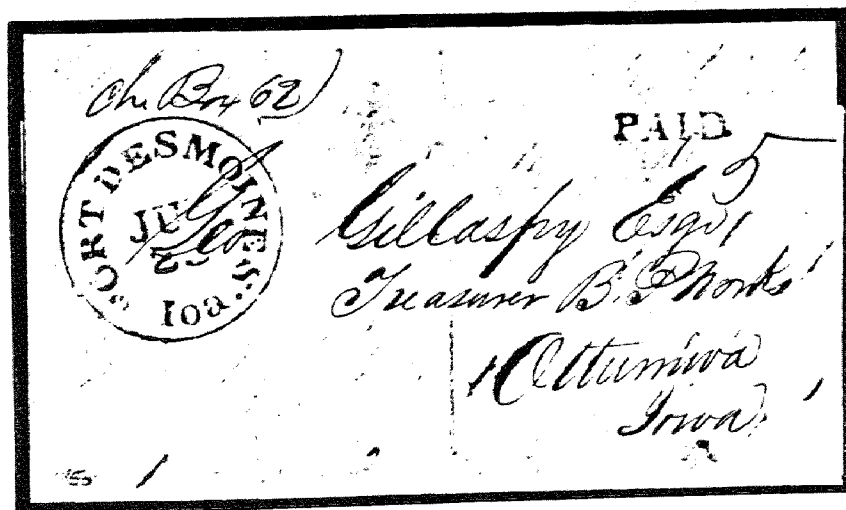 Ch. Box 62)
PAID
5
FORT DESMOINES Ioa.
JU
Geo Gillaspy Esqr,
Treasurer B. P. Works
Ottumwa
Iowa